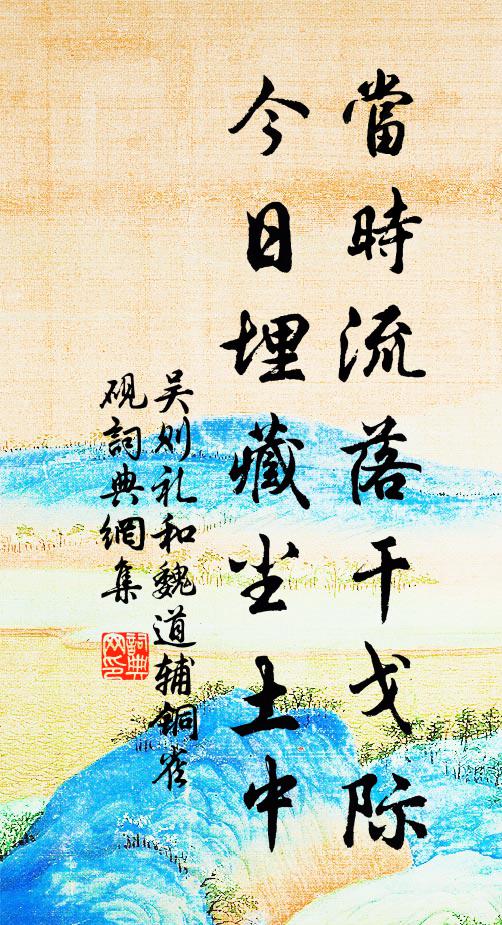 當時流落干戈际
今日埋藏尘土中
吴则礼和魏道辅铜雀
砚詞典網集
詞典网印